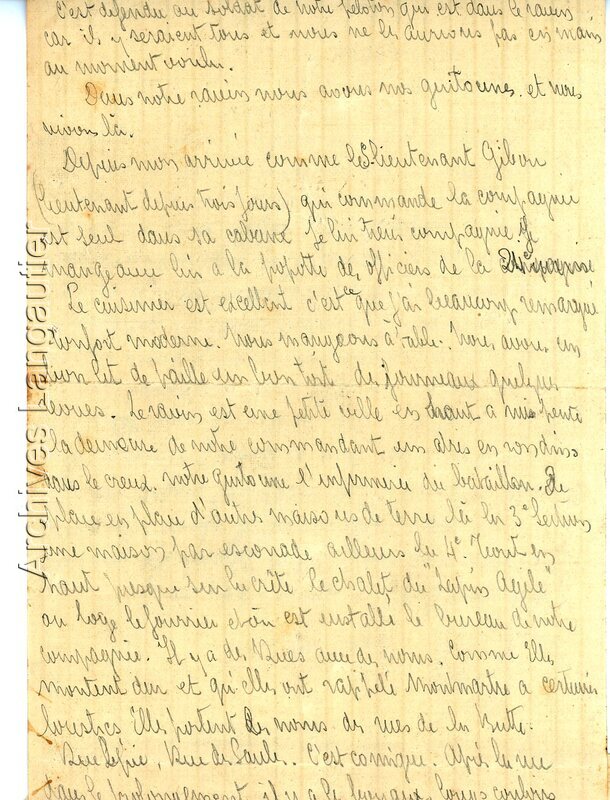 c'est defendu au soldat de notre peloton qui est dans le ravin
car ils y seraient tous et nous ne les aurions pas en main
au moment voulu.
Dans notre ravin nous avons nos guitounes. et nous
vivons là.
Depuis mon arrivée comme le lieutenant Gibon
(lieutenant depuis trois jours) qui commande la compagnie
est seul dans sa cabane je lui tiens compagnie je
mange avec lui a la popotte des officiers de la
Le cuisinier est excellent c'est ce que j'ai beaucoup remarqué
Confort moderne. Nous mangeons à table. Nous avons un
bon lit de paille un bon toit des journeaux quelques
revues. Le ravin est une petite ville en haut a mi pente
la demeure de notre commandant un abri en rondins
dans le creux. notre guitoune l'infirmerie du bataillon. De
place en place d'autres maisons de terre là la 3e Section
une maison par escouade ailleurs la 4e. Tout en
haut presque sur la crête le chalet du "Lapin Agile"
ou loge le fourrier et où est installé le bureau de notre
compagnie. Il y a des Rues avec des noms. Comme Elles
montent dur et qu'elles ont rappelé Montmartre a certains
loustics Elles portent les noms des rues de la Butte.
Rue Lepic, Rue des Saules. C'est comique. Après la rue
dans le prolongement il y a les boyaux
Archives Landsautier